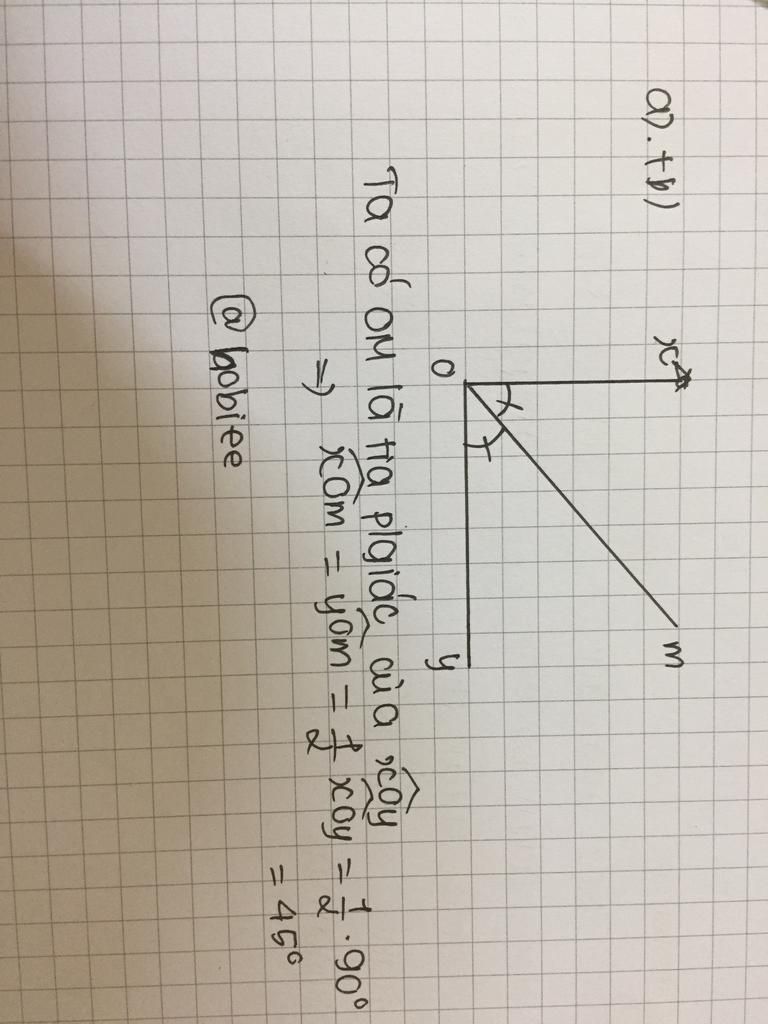 a). + b)
x
m
O
y
Ta có OM là tia p/giác của xOy
=> xOm = yOm = 1/2 xOy = 1/2 . 90°
= 45°
@bobiee